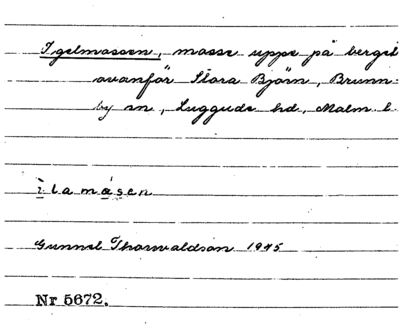 Igelmassen, masse uppe på berget
ovanför Stora Björn, Brunn-
by sn, Luggude hd, Malm. l.
ìlamásen
Gunnel Thorwaldson 1945
Nr 5672.